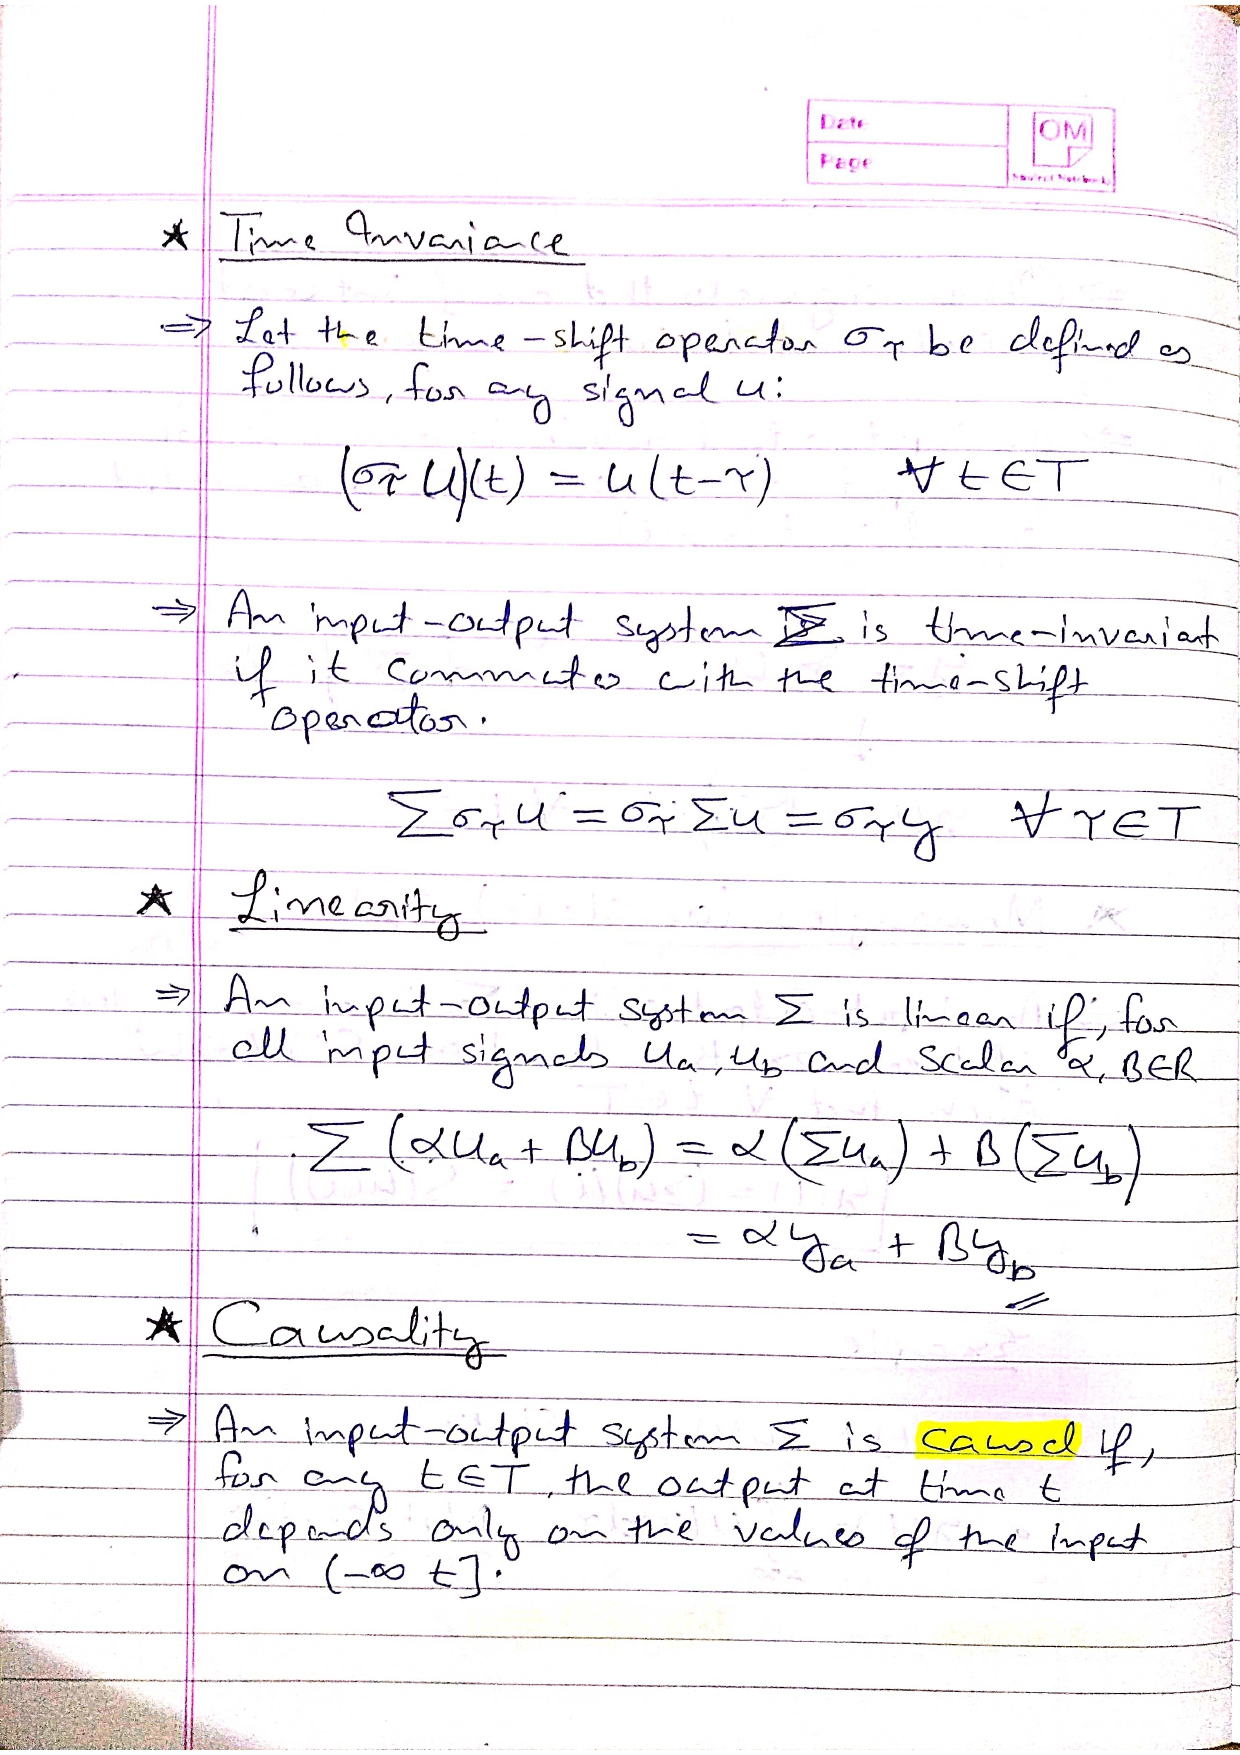 Date
OM
Page
★ Time Invariance
⇒ Let the time-shift operator σ_τ be defined as
follows, for any signal u:
(σ_τ u)(t) = u(t-τ) ∀ t ∈ T
⇒ An input-output system Σ is time-invariant
if it commutes with the time-shift
operator.
Σ σ_τ u = σ_τ Σ u = σ_τ y ∀ τ ∈ T
★ Linearity
⇒ An input-output system Σ is linear if, for
all input signals u_a, u_b and scalar α, β ∈ R
Σ (α u_a + β u_b) = α (Σ u_a) + β (Σ u_b)
= α y_a + β y_b
★ Causality
⇒ An input-output system Σ is causal if,
for any t ∈ T, the output at time t
depends only on the values of the input
on (-∞ t].